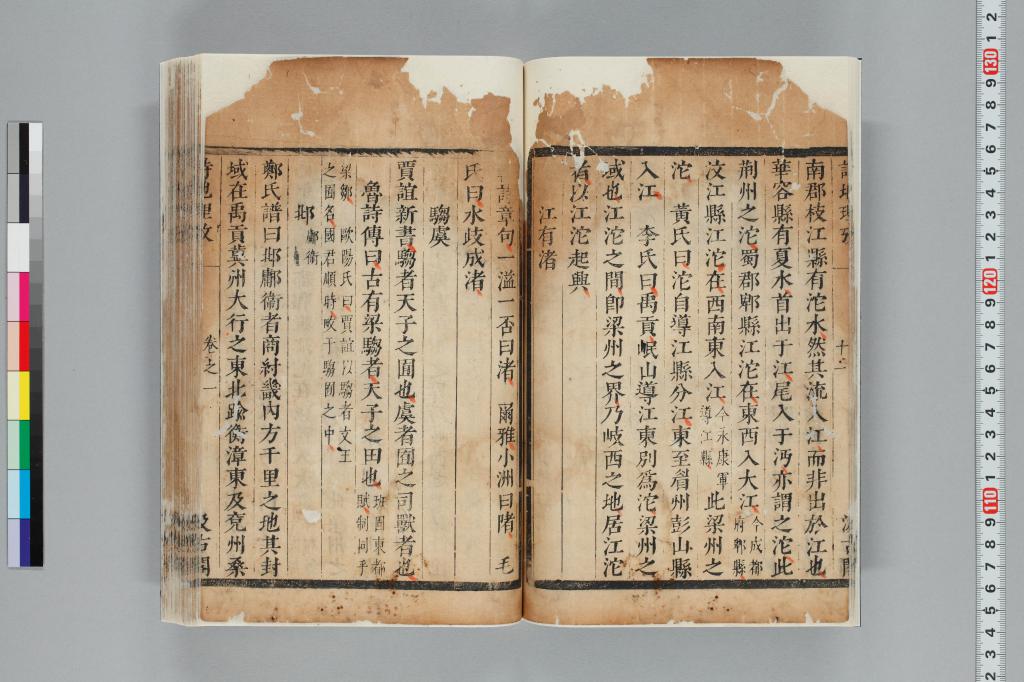 南郡枝江縣有沱水然其流入江而非出於江也
華容縣有夏水首出于江尾入于沔亦謂之沱此
荆州之沱蜀郡郫縣江沱在東西入大江今成都府郫縣
汶江縣江沱在西南東入江今永康軍導江縣此梁州之
沱 黃氏曰沱自導江縣分江東至眉州彭山縣
入江 李氏曰禹貢岷山導江東別爲沱梁州之
域也江沱之間卽梁州之界乃岐西之地居江沱
者以江沱起興
江有渚
章句一溢一否曰渚 爾雅小洲曰陼 毛
氏曰水歧成渚
騶虞
賈誼新書騶者天子之囿也虞者囿之司獸者也
魯詩傳曰古有梁騶者天子之田也班固東都賦制同乎
梁鄒 歐陽氏曰賈誼以騶者文王
之囿名國君順時畋于騶囿之中
邶鄘衛
鄭氏譜曰邶鄘衛者商紂畿内方千里之地其封
域在禹貢冀州大行之東北踰衡漳東及兗州桑
詩地理攷
卷之一
汲古閣